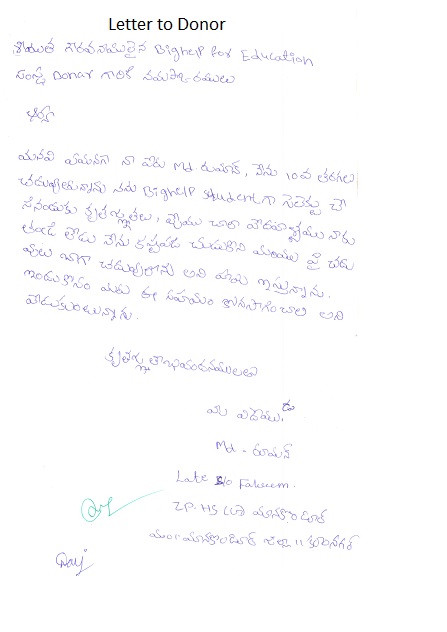 Letter to Donor
శ్రీయుత గౌరవనీయులైన Bighelp for Education
సంస్థ Donar గారికి నమస్కారములు
ఆర్యా
మనవి ఏమనగా నా పేరు Md. రుమాన్, నేను 10వ తరగతి
చదువుతున్నాను నను Bighelp student గా సెలెక్ట్ చే
సినందుకు కృతజ్ఞతలు, మేము చాలా
తండ్రి లేడు నేను కష్టపడి చదువుకొని మరియు పై చదు
వులు బాగా చదువుతాను అని హామి ఇస్తున్నాను.
ఇందుకోసం మీరు ఈ సహాయం కొనసాగించాలి అని
వేడుకుంటున్నాను.
కృతజ్ఞతాభివందనములతో
మీ విధేయుడు
Md. రుమాన్
Late S/o Faheem.
ZP.HS మానకొండూర్
మం॥ మానకొండూర్ జిల్లా ॥ కరీంనగర్